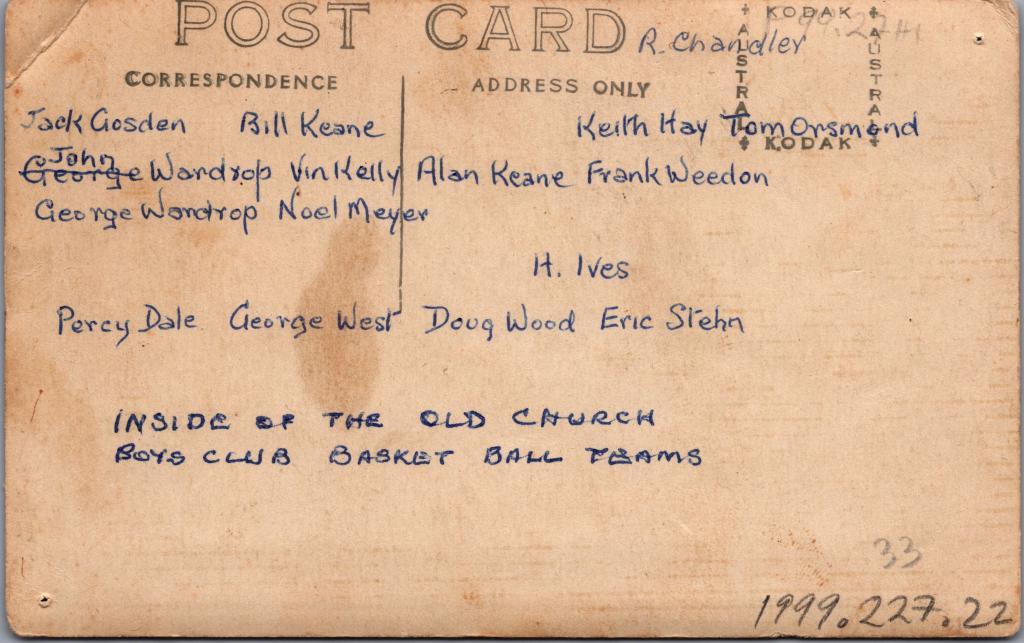 POST CARD
KODAK
AUSTRAL
AUSTRAL
KODAK
R. Chandler
CORRESPONDENCE
ADDRESS ONLY
Jack Gosden Bill Keane Keith Hay Tom Orsmond
John
George Wardrop Vin Kelly Alan Keane Frank Weedon
George Wardrop Noel Meyer
H. Ives
Percy Dale George West Doug Wood Eric Stehn
INSIDE OF THE OLD CHURCH
BOYS CLUB BASKET BALL TEAMS
33
1999.227.22